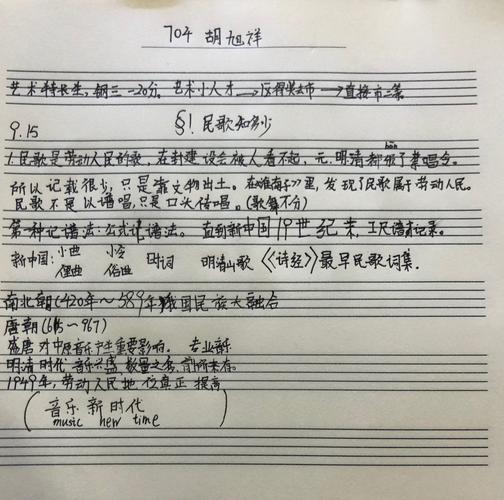 704 胡旭祥
艺术特长生，钢三-20分，艺术小人才→区得奖去市→直接市二等
9.15
§1 民歌知多少
1.民歌是劳动人民的歌，在封建设会被人看不起，元.明清都颁了禁唱令。
所以记载很少，只是靠文物出土。在《淮南子》里，发现了民歌属于劳动人民。
民歌不是以谱唱，只是口头传唱。(歌舞不分)
第一种记谱法：公式记谱法。直到新中国19世纪末，工尺谱才记录。
新中国：小曲 小令 时词 明清山歌 《《诗经》》最早民歌词集.
俚曲 俗曲
南北朝(420年～589年我国民族大融合
唐朝(615～967)
盛唐对中原音乐产生重要影响. 专业音乐
明清时代 音乐兴盛 数量之多，前所未有.
1949年，劳动人民地位真正 提高
(音乐新时代
music new time)